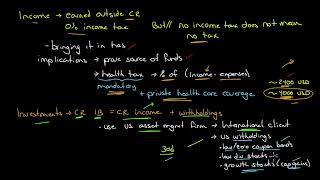 Income → earned outside CR But// no income tax does not mean
0% income tax no tax
- bringing it in has
implications → prove source of funds
↳ health tax → % of (income - expenses)
mandatory ~ 2400 USD
+ private health care coverage ~ 4000 USD
Investments → CR IB = CR income + withholdings
- use US asset mgmt firm → International client
→ US withholdings
- low/zero coupon bonds
- low div stocks
- growth stocks (cap gains)